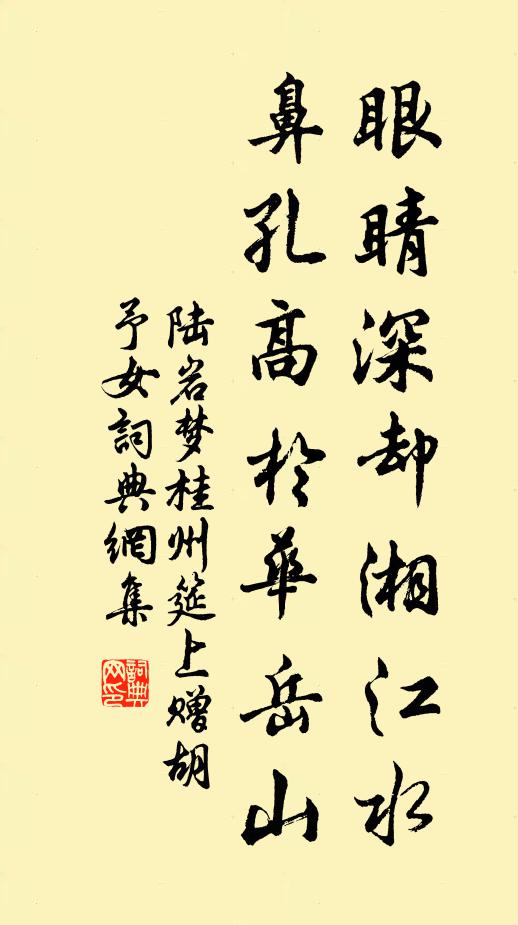 眼睛深却湘江水
鼻孔高於華岳山
陆岩梦桂州筵上赠胡
予女詞典網集
詞典
网印